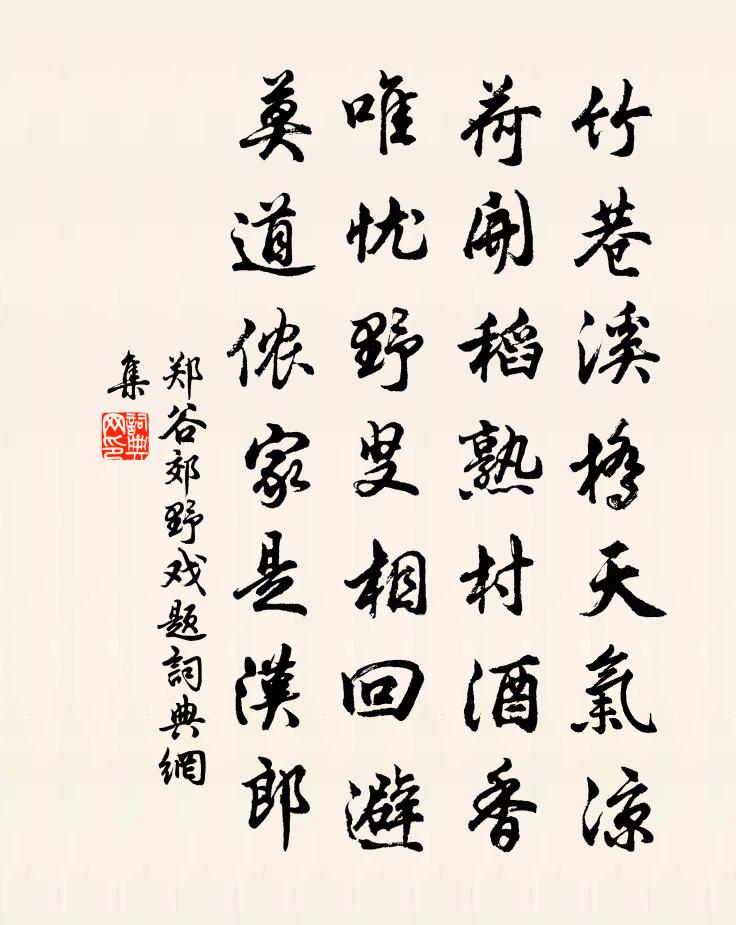 竹巷溪橋天氣涼
荷開稻熟村酒香
唯忧野叟相回避
莫道侬家是漢郎
郑谷郊野戏题詞典網
集
詞典
网印